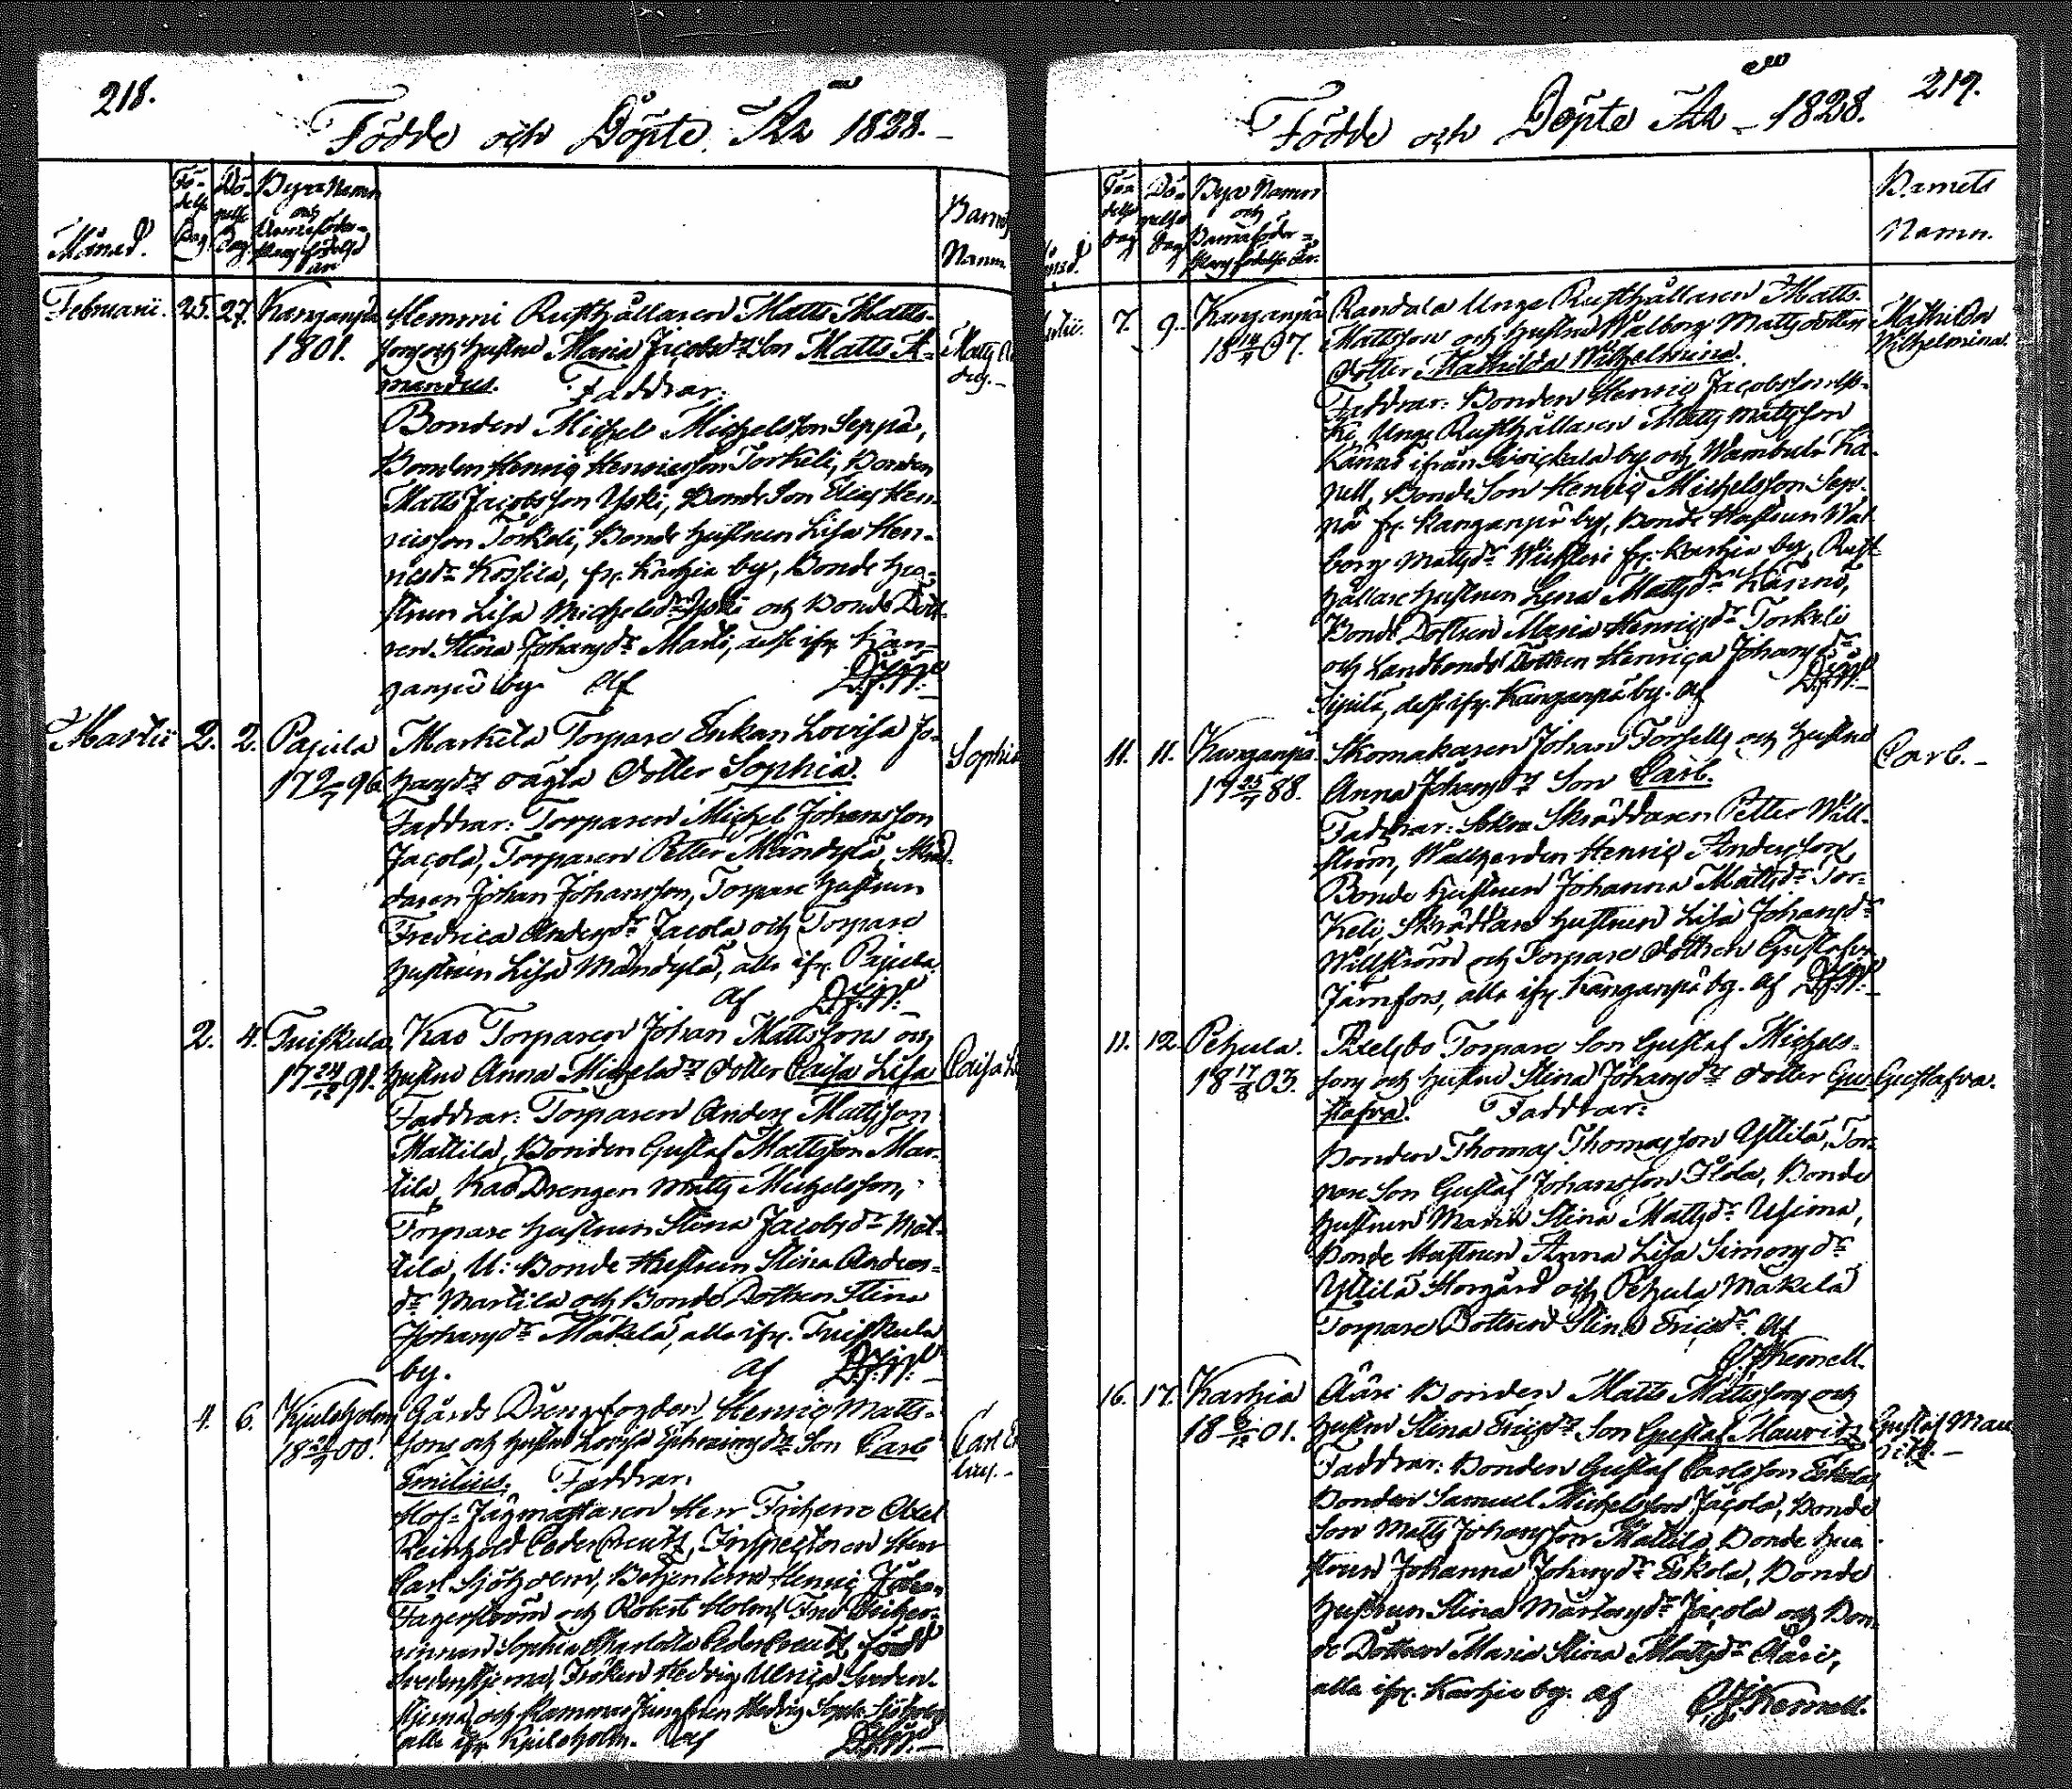 218.
Födde och Döpte År 1828.
Månad.
Födelse Dag
Döpelse Dag
Byns Namn och Barnaföder-skans födelse år
Barnets
Namn.
Februarii. 25. 27. Kanganpä Hemmi Rusthållaren Matts Matts-
1801. son och hustru Maria Jacobsdrs Son Matts A- Matts A
mandus. Faddrar:
Bonden Michel Michelsson Seppä,
Bonden Henric Henricsson Torkeli, Bonden
Matts Jacobsson Yski, Bonde Son Elias Hen-
ricsson Torkeli, Bonde hustrun Lisa Hen-
ricsdr Kossila, fr. Karhia by, Bonde hu-
strun Lisa Michelsdr Yski och Bonde Dott-
ren Stina Johansdr Marti, desse ifr. Kan-
ganpä by. Af
Martii 2. 2. Pajula Markila Torpare Enkan Lovisa Jo- Sophia
17 2/7 96 hansdrs oägta Dotter Sophia.
Faddrar: Torparen Michel Johansson
Jacola, Torparen Petter Mändylä, Skräd-
daren Johan Johansson, Torpare hustrun
Fredrica Andersdr Jacola och Torpare
hustrun Lisa Mändylä, alla ifr. Pajula.
af
2. 4. Tuiskula Kas Torparen Johan Mattssons och
17 24/12 91. hustru Anna Michelsdrs Dotter Caisa Lisa Caisa Li
Faddrar: Torparen Anders Mattsson
Mattila, Bonden Gustaf Mattsson Mar-
tila, Kas Drengen Matts Michelsson,
Torpare hustrun Stina Jacobsdr Mat-
tila, U: Bonde Hustrun Stina Anders-
dr Martila och Bonde Dottren Stina
Johansdr Mäkelä, alla ifr. Tuiskula
by. af
4. 6. Kjuloholm Gårds Drengfogden Henric Matts-
00. sons och hustru Lovisa Ephraimsdrs Son Carl Carl E
Emilius. Faddrar: lius.
Hof-Jägmästaren Herr Friherre Axel
Reinhold CederCreutz, Inspectoren Herr
Carl Sjöholm, Betjenterne Henric
Fagerström och Robert Holm, Fru Friher-
innan Sophia Charlotta CederCreutz född
Svedenstjerna, Fröken Hedvig Ulrica Sveden-
stjerna och Kammar Jungfrun Hedvig Soph. Sjöholm
alla ifr. Kjuloholm. af
219.
Födde och Döpte År 1828.
Födelse dag
Döpelse dag
Byns Namn och Barnaföder-skans födelse år.
Barnets
Namn.
7. 9. Kanganpä Randala Unge Rusthållaren Matts Mathilda
18 07. Mattsson och hustru Walborg Mattsdotters Wilhelmina.
Dotter Mathilda Wilhelmina.
Faddrar: Bonden Henric Jacobsson Ys-
ki, Unge Rusthållaren Matts Mattsson
Känno ifrån by och Wambula Ka-
pell, Bonde Son Henric Michelsson Sep-
pä fr. Kanganpä by, Bonde Hustrun Wal-
borg Mattsdr fr. Karhia by, Rust-
hållare hustrun Lena Mattsdr Känno,
Bonde Dottren Maria Henricsdr Torkeli
och Landbonde Dottren Henrica Johansdr
Sipilä, desse ifr. Kanganpä by. af
11. 11. Kanganpä Skomakaren Johan Forsells och hustru Carl.
17 25/7 88. Anna Johansdrs Son Carl.
Faddrar: Sokne Skräddaren Petter Will-
ström, Wallgerden Henric Andersson,
Bonde hustrun Johanna Mattsdr Tor-
keli, Skräddare hustrun Lisa Johansdr
Willström och Torpare Dottren Gustafva
Jämfors, alla ifr. Kanganpä by. af
11. 12. Pehula. Torpare Son Gustaf Michels-
18 17/8 03. sons och hustru Stina Johansdrs Dotter Gu- Gustafva.
stafva. Faddrar:
Bonden Thomas Thomasson Yttilä, Tor-
pare Son Gustaf Johansson Isola, Bonde
hustrun Maria Stina Mattsdr Ussima,
Bonde Hustrun Anna Lisa Simonsdr
Yttilä Storgård och Pehula Mäkelä
Torpare Dottren Stina Ericsdr. Af
Kemell.
16. 17. Karhia Ääri Bonden Matts Mattssons och
18 01. hustru Stina Ericsdrs Son Gustaf Maurits. Gustaf Mau
Faddrar: Bonden Gustaf Carlsson Eskola, rits.
Bonden Samuel Michelsson Jacola, Bonde
Son Matts Johansson Mattila, Bonde hu-
strun Johanna Johansdr Eskola, Bonde
hustrun Stina Mårtensdr Jacola och Bon-
de Dottren Maria Stina Mattsdr Ääri,
alla ifr. Karhia by. af Kemell.